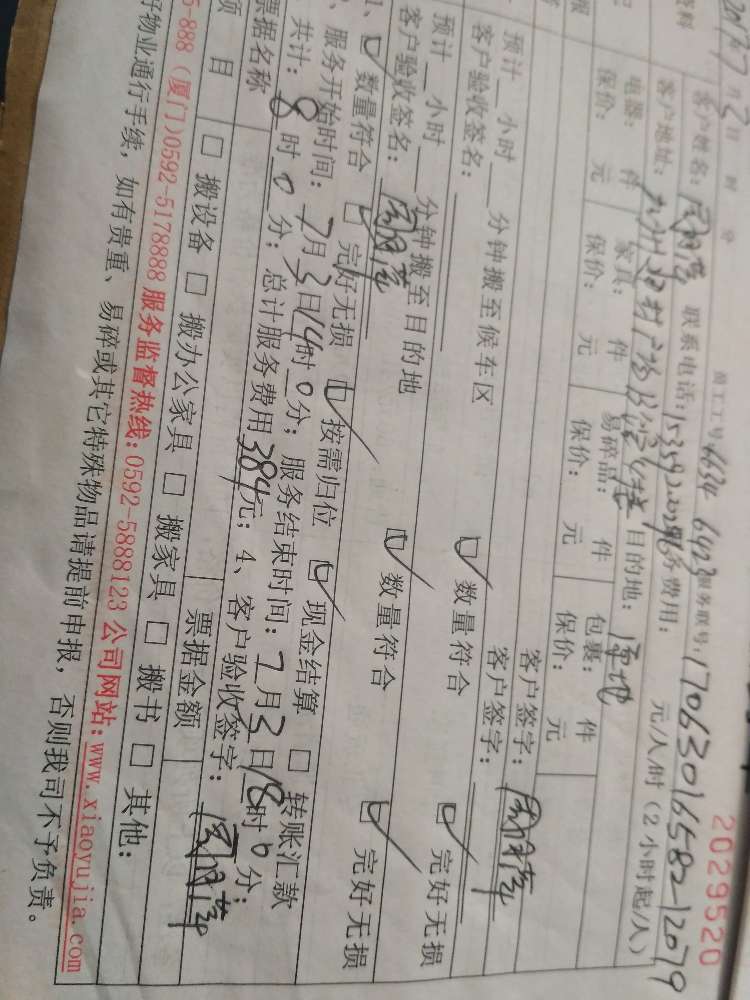 2029520
2017年7月2日 时 分 员工工号:6634 6423 服务账号:170630165821 2079
资料 客户姓名: 联系电话: 服务费用: 元/人/时(2小时起/人)
客户地址: 目的地:原地
电器: 件 家具: 件 易碎品: 件 包裹: 件
保价: 元 保价: 元 保价: 元 保价: 元
客户签字:
预计__小时__分钟搬至候车区 数量符合 完好无损
客户验收签名: 客户签字:
预计__小时__分钟搬至目的地 数量符合 完好无损
客户验收签名:
1、 数量符合 完好无损 按需归位 现金结算 转账汇款
、服务开始时间:7月3日14时0分;服务结束时间:7月3日18时0分;
共计:8时0分;总计服务费用384元;4、客户验收签字:
票据名称 票据金额
项目 搬设备 搬办公家具 搬家具 搬书 其他:
5-888(厦门)0592-5178888 服务监督热线:0592-5888123 公司网站:www.xiaoyujia.com
好物业通行手续,如有贵重、易碎或其它特殊物品请提前申报,否则我司不予负责。